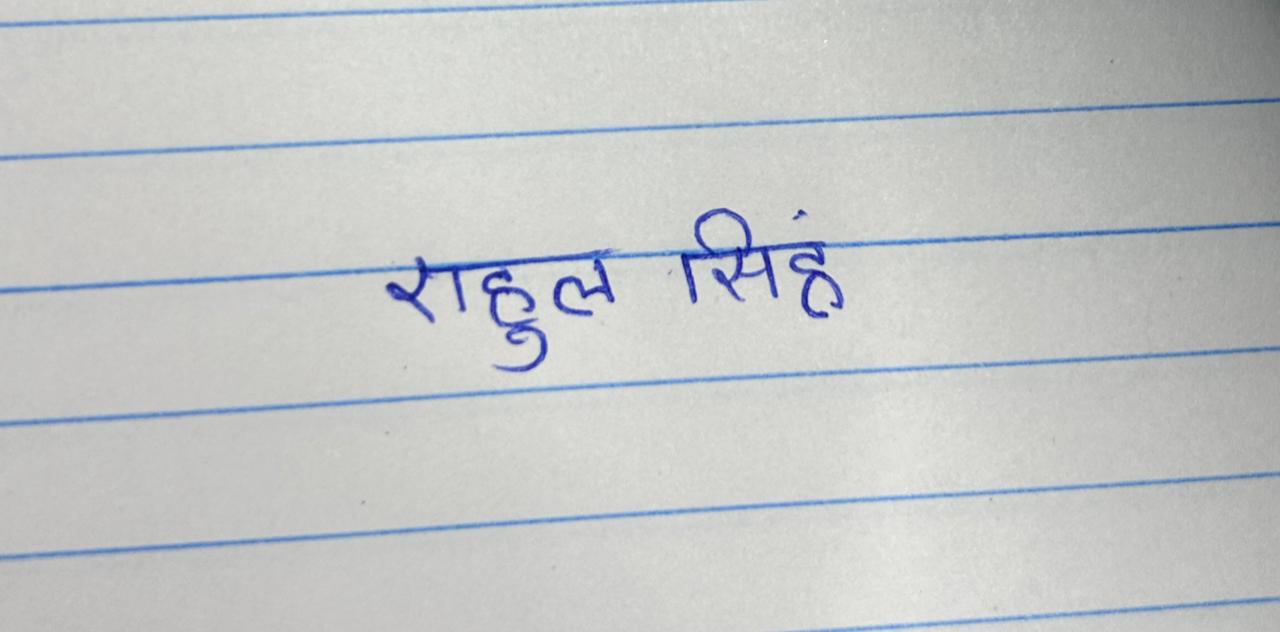 राहुल सिहं